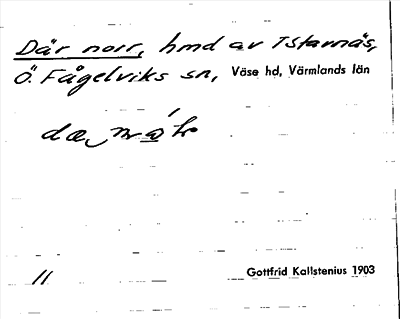 Där norr, hmd av Tstavnäs,
Ö. Fågelviks sn, Väse hd, Värmlands län
11
Gottfrid Kallstenius 1903